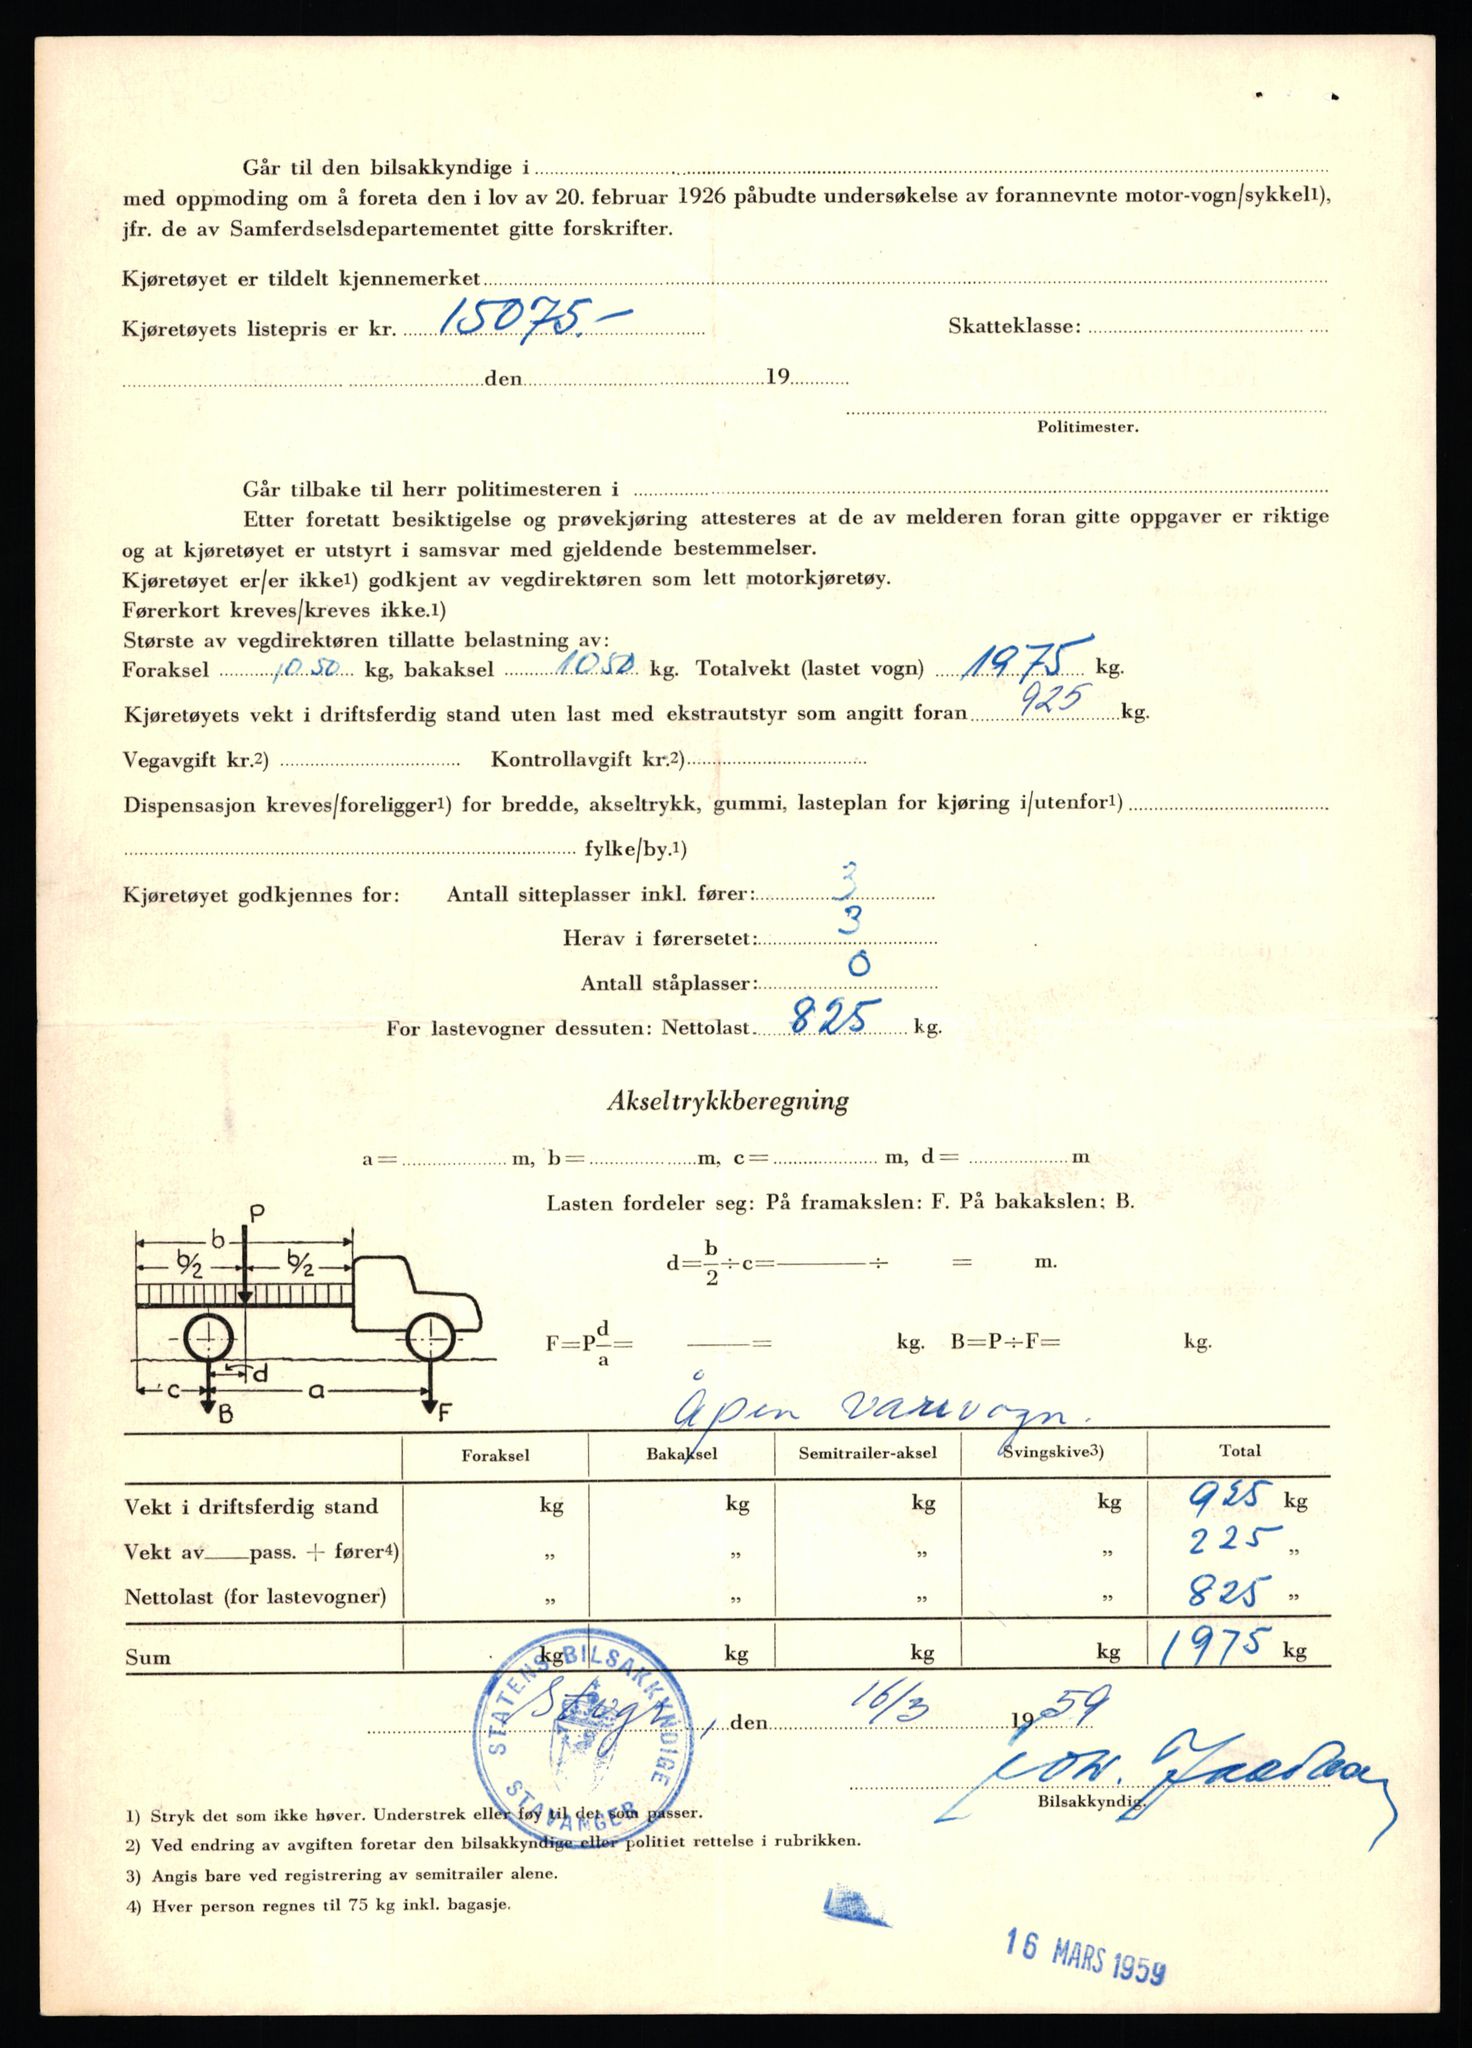 Går til den bilsakkyndige i
med oppmoding om å foreta den i lov av 20. februar 1926 påbudte undersøkelse av forannevnte motor-vogn/sykkel1),
jfr. de av Samferdselsdepartementet gitte forskrifter.
Kjøretøyet er tildelt kjennemerket
Kjøretøyets listepris er kr. 15075.- Skatteklasse:
den 19
Politimester.
Går tilbake til herr politimesteren i
Etter foretatt besiktigelse og prøvekjøring attesteres at de av melderen foran gitte oppgaver er riktige
og at kjøretøyet er utstyrt i samsvar med gjeldende bestemmelser.
Kjøretøyet er/er ikke1) godkjent av vegdirektøren som lett motorkjøretøy.
Førerkort kreves/kreves ikke.1)
Største av vegdirektøren tillatte belastning av:
Foraksel 1050 kg, bakaksel 1050 kg. Totalvekt (lastet vogn) 1975 kg.
Kjøretøyets vekt i driftsferdig stand uten last med ekstrautstyr som angitt foran 925 kg.
Vegavgift kr.2) Kontrollavgift kr.2)
Dispensasjon kreves/foreligger1) for bredde, akseltrykk, gummi, lasteplan for kjøring i/utenfor1)
fylke/by.1)
Kjøretøyet godkjennes for: Antall sitteplasser inkl. fører: 3
Herav i førersetet: 3
Antall ståplasser: 0
For lastevogner dessuten: Nettolast 825 kg.
Akseltrykkberegning
a= m, b= m, c= m, d= m
Lasten fordeler seg: På framakslen: F. På bakakslen: B.
d=b/2÷c= ÷ = m.
F=P d/a= = kg. B=P÷F= kg.
P
b
b/2 b/2
d
c a
B F
Åpen varevogn.
Foraksel Bakaksel Semitrailer-aksel Svingskive3) Total
Vekt i driftsferdig stand kg kg kg kg 925 kg
Vekt av pass. + fører4) „ „ „ „ 225 „
Nettolast (for lastevogner) „ „ „ „ 825 „
Sum kg kg kg kg 1975 kg
STATENS BILSAKKYNDIGE
STAVANGER
Stvgr, den 16/3 1959
Bilsakkyndig.
1) Stryk det som ikke høver. Understrek eller føy til det som passer.
2) Ved endring av avgiften foretar den bilsakkyndige eller politiet rettelse i rubrikken.
3) Angis bare ved registrering av semitrailer alene.
4) Hver person regnes til 75 kg inkl. bagasje.
16 MARS 1959